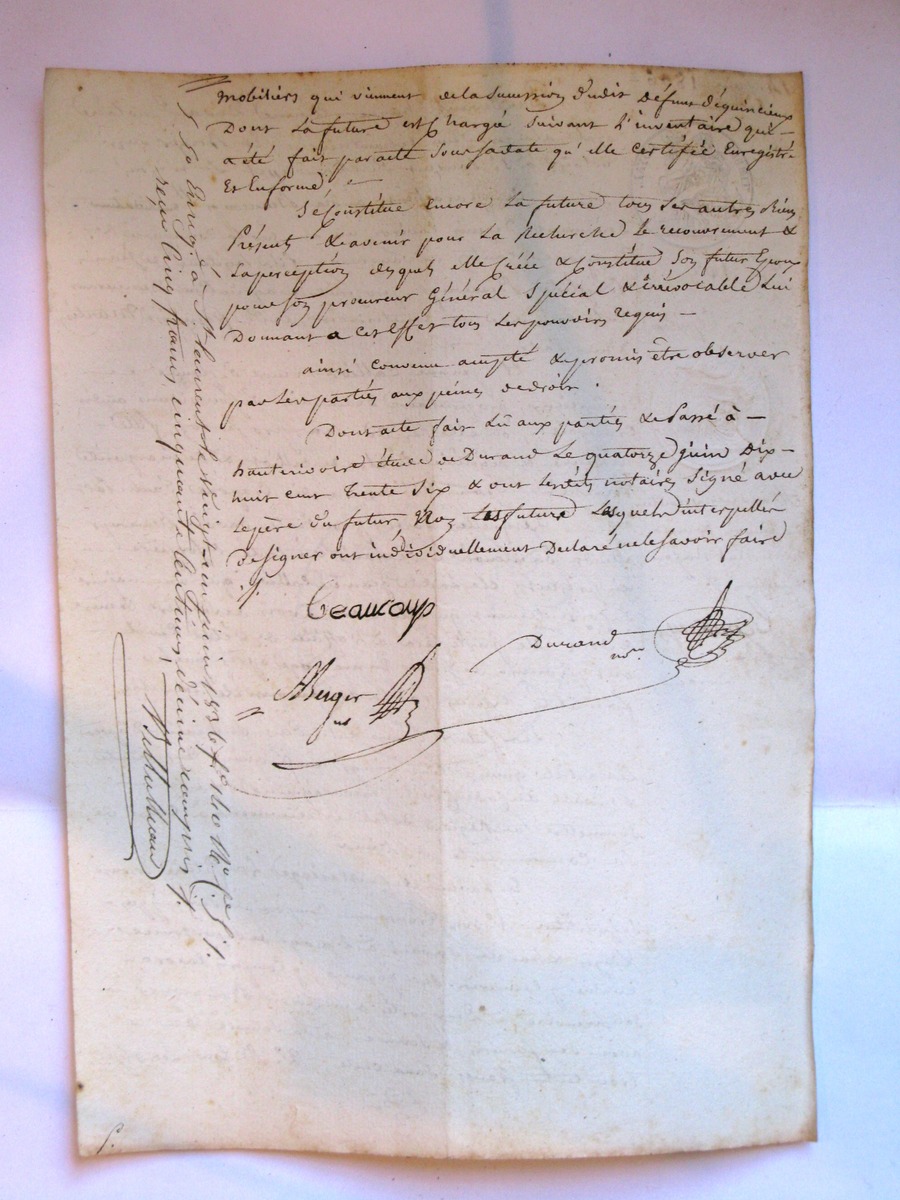 mobiliers qui viennent de la sucession dudit défunt déquincieux
Dont La future est Chargée suivant L'inventaire qui
a été fait par acte sous sa date qu'elle certifie Enregistré
Et En forme
Se Constitue encore La future tous ses autres Biens
Présents & avenir pour La Recherche Le recouvrement &
La perception desquels elle Créée & Constitue Son futur Epoux
pour son procureur Général Spécial & irrévocable Lui
Donnant a cet Effet tous Les pouvoirs requis —
ainsi convenu accepté & promis être observer
par Les parties aux peines de droit.
Dont acte fait Lu aux parties & Passé à —
hauterivoire étude de Durand Le quatorze juin Dix-
huit cent trente Six & ont Lesdits notaires signé avec
Le père du futur Non Les future Lesquels d'interpellés
De signer ont individuellement Déclaré ne le savoir faire
Beaucoup
Durand
nre
Berger
nre
Enrig. à St Laurent le vingt un juin 1836 fo
reçu Cinq francs cinquante centimes, décime compris